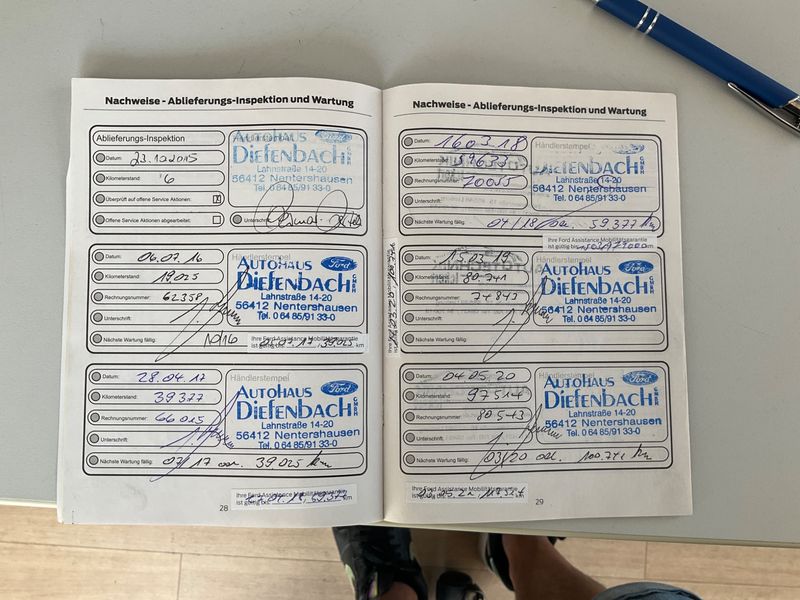 Nachweise - Ablieferungs-Inspektion und Wartung
Ablieferungs-Inspektion
Datum: 23.10.2015
Kilometerstand: 6
Überprüft auf offene Service Aktionen: X
Offene Service Aktionen abgearbeitet:
Händlerstempel
AUTOHAUS Ford
DIEFENBACH GMBH
Lahnstraße 14-20
56412 Nentershausen
Tel. 0 64 85/91 33-0
Datum: 06.07.16
Kilometerstand: 19025
Rechnungsnummer: 62358
Unterschrift:
Nächste Wartung fällig:
Händlerstempel
AUTOHAUS Ford
DIEFENBACH GMBH
Lahnstraße 14-20
56412 Nentershausen
Tel. 0 64 85/91 33-0
Ihre Ford Assistance Mobilitätsgarantie
ist gültig bis: 39.025 km
Datum: 28.04.17
Kilometerstand: 39377
Rechnungsnummer: 66015
Unterschrift:
Nächste Wartung fällig: 07/17 od. 39.025 km
Händlerstempel
AUTOHAUS Ford
DIEFENBACH GMBH
Lahnstraße 14-20
56412 Nentershausen
Tel. 0 64 85/91 33-0
Ihre Ford Assistance Mobilitätsgarantie
ist gültig bis: km
28
Nachweise - Ablieferungs-Inspektion und Wartung
Datum: 16.03.18
Kilometerstand: 59633
Rechnungsnummer: 70055
Unterschrift:
Nächste Wartung fällig: 04/18 od. 59.377 km
Händlerstempel
DIEFENBACH
Lahnstraße 14-20
56412 Nentershausen
Tel. 0 64 85/91 33-0
Ihre Ford Assistance Mobilitätsgarantie
ist gültig bis: km
Datum: 15.03.19
Kilometerstand: 80741
Rechnungsnummer: 74843
Unterschrift:
Nächste Wartung fällig:
AUTOHAUS Ford
DIEFENBACH GMBH
Lahnstraße 14-20
56412 Nentershausen
Tel. 0 64 85/91 33-0
Ihre Ford Assistance Mobilitätsgarantie
ist gültig bis:
Datum: 04.05.20
Kilometerstand: 97514
Rechnungsnummer: 80543
Unterschrift:
Nächste Wartung fällig: 03/20 od. 100.741 km
Händlerstempel
AUTOHAUS Ford
DIEFENBACH GMBH
Lahnstraße 14-20
56412 Nentershausen
Tel. 0 64 85/91 33-0
Ihre Ford Assistance Mobilitätsgarantie
ist gültig bis: km
29